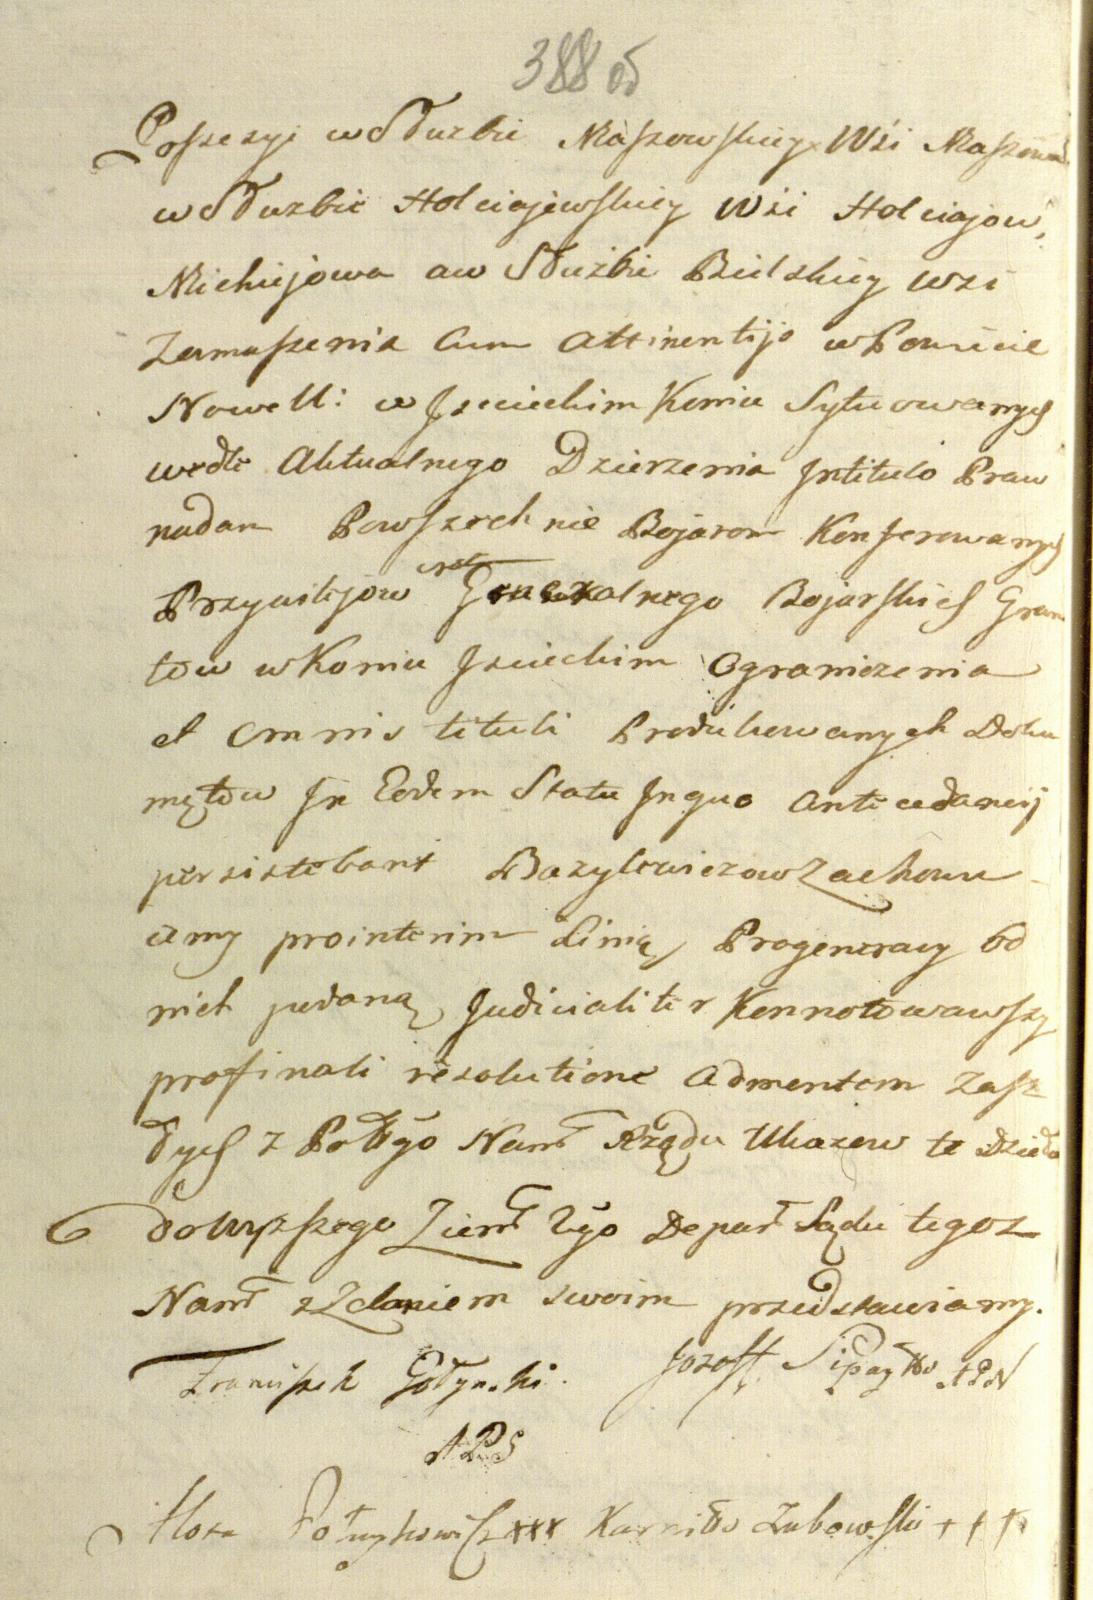 388 об
Posseszyi w Służbie Maszowskiey Wśi Maszowa
w Służbie Holciajewskiey Wśi Holciajow,
Michiejowa a w Służbie Bielskiey wsi
Zamuszenia Cum Attinentijs w Powiecie
Nowell: w Jsciechim Koniu Sytuowanych
wedle Aktualnego Dzierzenia Jntitulo Praw
nadan Powszechnie Bojarom Konferowanych
Przywilejow Generalnego Bojarskich Grun
tow w Koniu Jsciechim Ograniczenia
et Omnis tituli Produkowanych Doku
mętow Jn Eodem Statu Jnquo Antecedaneij
persistebant Bazylewiczow Zachowu
iemy prointerim Linią Progeneracyi od
nich podaną Judicialiter Konnotowawszy
profinali resolutione Admentem Zasz
łych z Połtgo Namł Rządu Ukazow te Dzieło
do Wyższego Ziemł 2go Depart Sądu tegoz
Namł z Zdaniem swoim przedstawiamy.
Franciszek Gołyński. Jozoff Sipayło APN
APS
Hosa xxx Karniło Zubowski +++